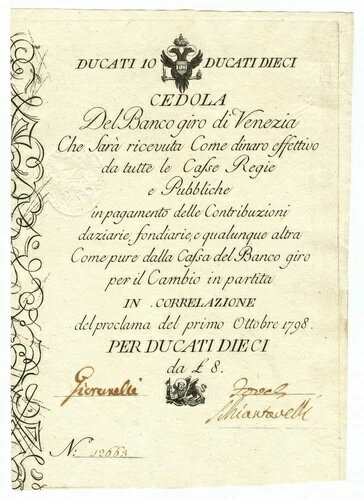 DUCATI 10 DUCATI DIECI
CEDOLA
Del Banco giro di Venezia
Che Sarà ricevuta Come dinaro effettivo
da tutte le Caſse Regie
e Pubbliche
in pagamento delle Contribuzioni
daziarie, fondiarie, e qualunque altra
Come pure dalla Caſsa del Banco giro
per il Cambio in partita
IN CORRELAZIONE
del proclama del primo Ottobre 1798.
PER DUCATI DIECI
da £ 8.
N: 12663